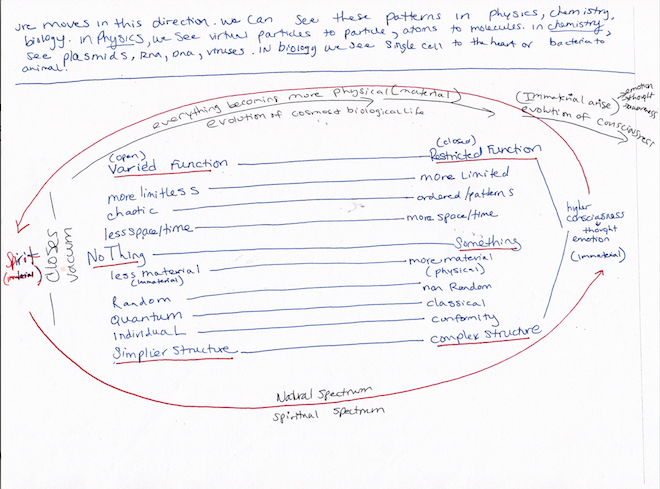 moves in this direction. we can see these patterns in physics, chemistry,
biology. in Physics, we see virtual particles to particle, atoms to molecules. in chemistry,
see plasmids, Rna, dna, viruses. in biology we see single cell to the heart or bacteria to
animal.
everything becoming more physical (material)
evolution of cosmos + biological life
(Immaterial arise)
emotion
thought
awareness
evolution of consciousness
(open)
Varied Function
(closed)
Restricted Function
more limitless
more limited
chaotic
ordered/patterns
less space/time
more space/time
No Thing
Something
less material
(immaterial)
more material
(physical)
Random
non Random
Quantum
classical
individual
conformity
Simplier Structure
complex structure
Spirit
closes
vacuum
higher
consciousness
thought
emotion
(immaterial)
Natural spectrum
Spiritual spectrum